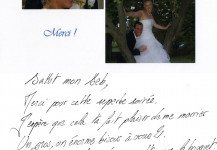 Merci !
Salut mon Seb,
Merci pour cette superbe soirée,
J'espère que cela t'a fait plaisir de me marier
Un gros, un énorme bisous à vous 4.